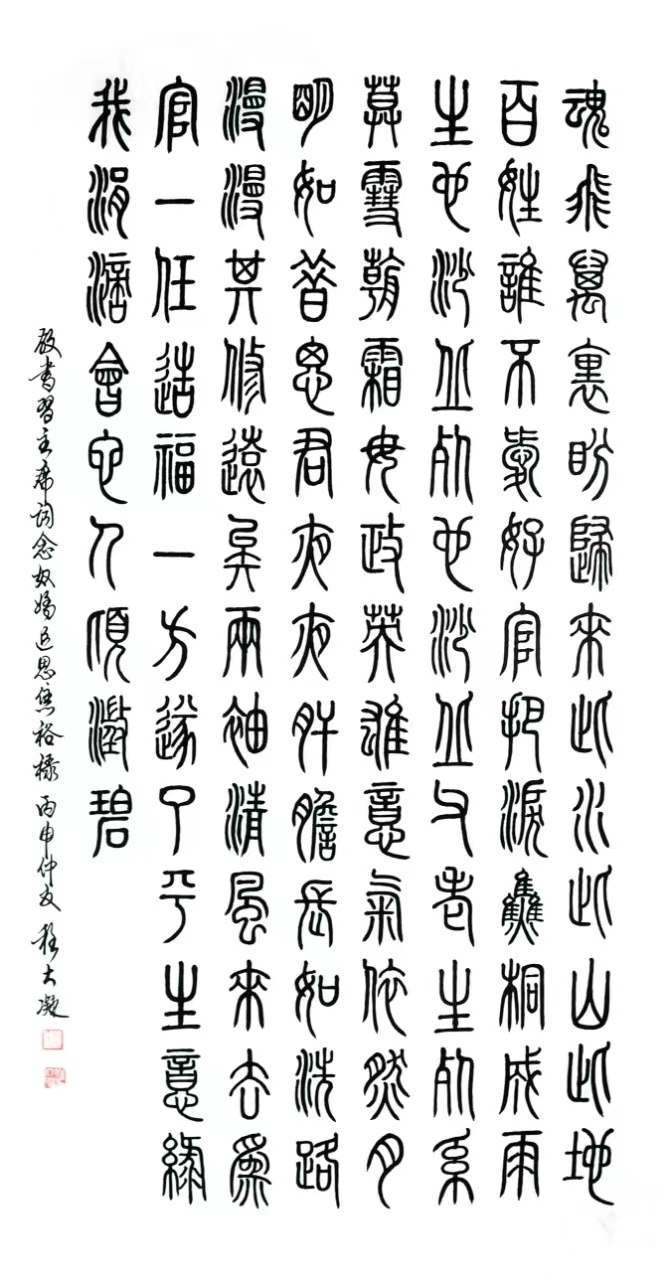 魂飛萬裏盼歸來此水此山此地
百姓誰不愛好官把淚焦桐成雨
生也沙丘死也沙丘父老生死系
莫雪朝霜毋改英雄意氣依然月
明如昔思君夜夜肝膽長如洗路
漫漫其修遠矣兩袖清風來去爲
官一任造福一方遂了平生意綠
我涓滴會它千頃澂碧
敬書習主席詞念奴嬌追思焦裕祿 丙申仲夏 程大凝